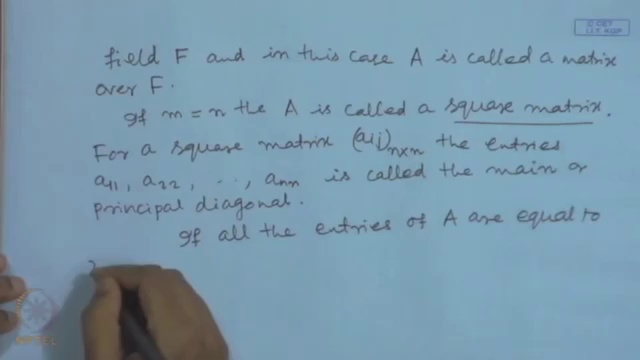 © CET
I.I.T. KGP
field F and in this case A is called a matrix
over F.
If m = n the A is called a square matrix.
For a square matrix (aij)n×n the entries
a11, a22, . . ., ann is called the main or
principal diagonal.
If all the entries of A are equal to
NPTEL